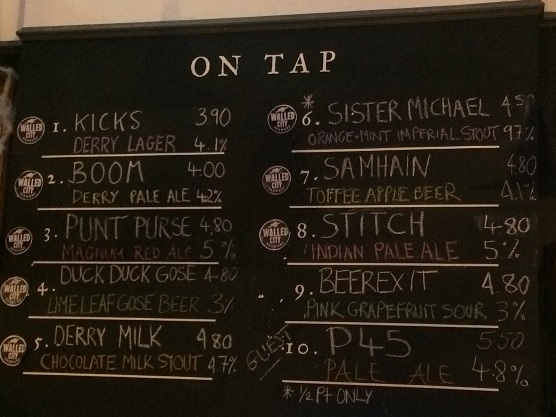 ON TAP
WALLED CITY
1. KICKS 3.90
DERRY LAGER 4.1%
WALLED CITY
2. BOOM 4.00
DERRY PALE ALE 4.2%
WALLED CITY
3. PUNT PURSE 4.80
MAGNUM RED ALE 5%
WALLED CITY
4. DUCK DUCK GOSE 4.80
LIME LEAF GOSE BEER 3%
WALLED CITY
5. DERRY MILK 4.80
CHOCOLATE MILK STOUT 4.7%
WALLED CITY
* 6. SISTER MICHAEL
ORANGE+MINT IMPERIAL STOUT 9.7%
WALLED CITY
7. SAMHAIN 4.80
TOFFEE APPLE BEER 4.1%
WALLED CITY
8. STITCH 4.80
INDIAN PALE ALE 5%
9. BEEREXIT 4.80
PINK GRAPEFRUIT SOUR 3%
GUEST
10. P45 5.50
PALE ALE 4.8%
* 1/2 PT ONLY